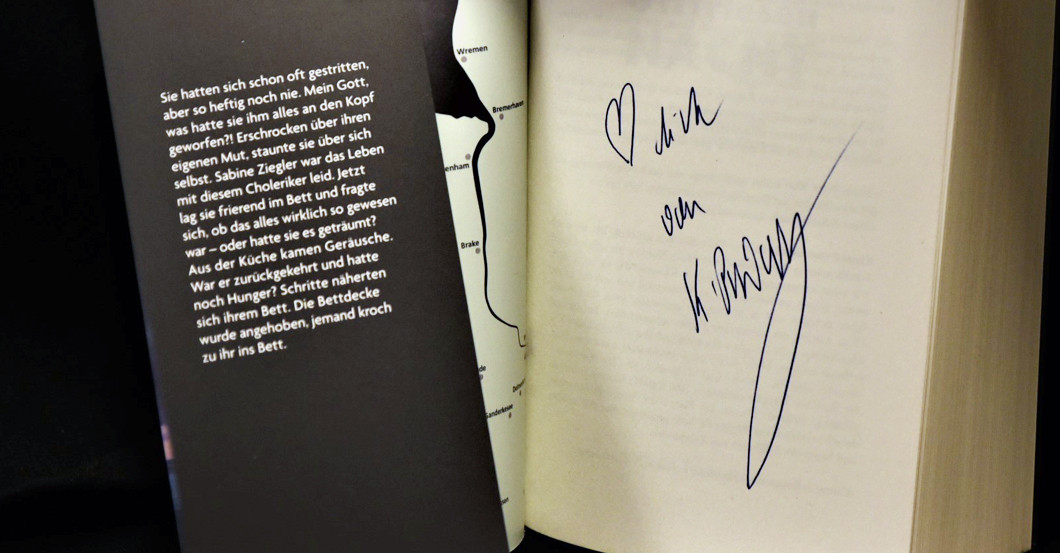 Sie hatten sich schon oft gestritten,
aber so heftig noch nie. Mein Gott,
was hatte sie ihm alles an den Kopf
geworfen?! Erschrocken über ihren
eigenen Mut, staunte sie über sich
selbst. Sabine Ziegler war das Leben
mit diesem Choleriker leid. Jetzt
lag sie frierend im Bett und fragte
sich, ob das alles wirklich so gewesen
war – oder hatte sie es geträumt?
Aus der Küche kamen Geräusche.
War er zurückgekehrt und hatte
noch Hunger? Schritte näherten
sich ihrem Bett. Die Bettdecke
wurde angehoben, jemand kroch
zu ihr ins Bett.
Wremen
Bremerhaven
enham
Brake
de
Ganderkesee